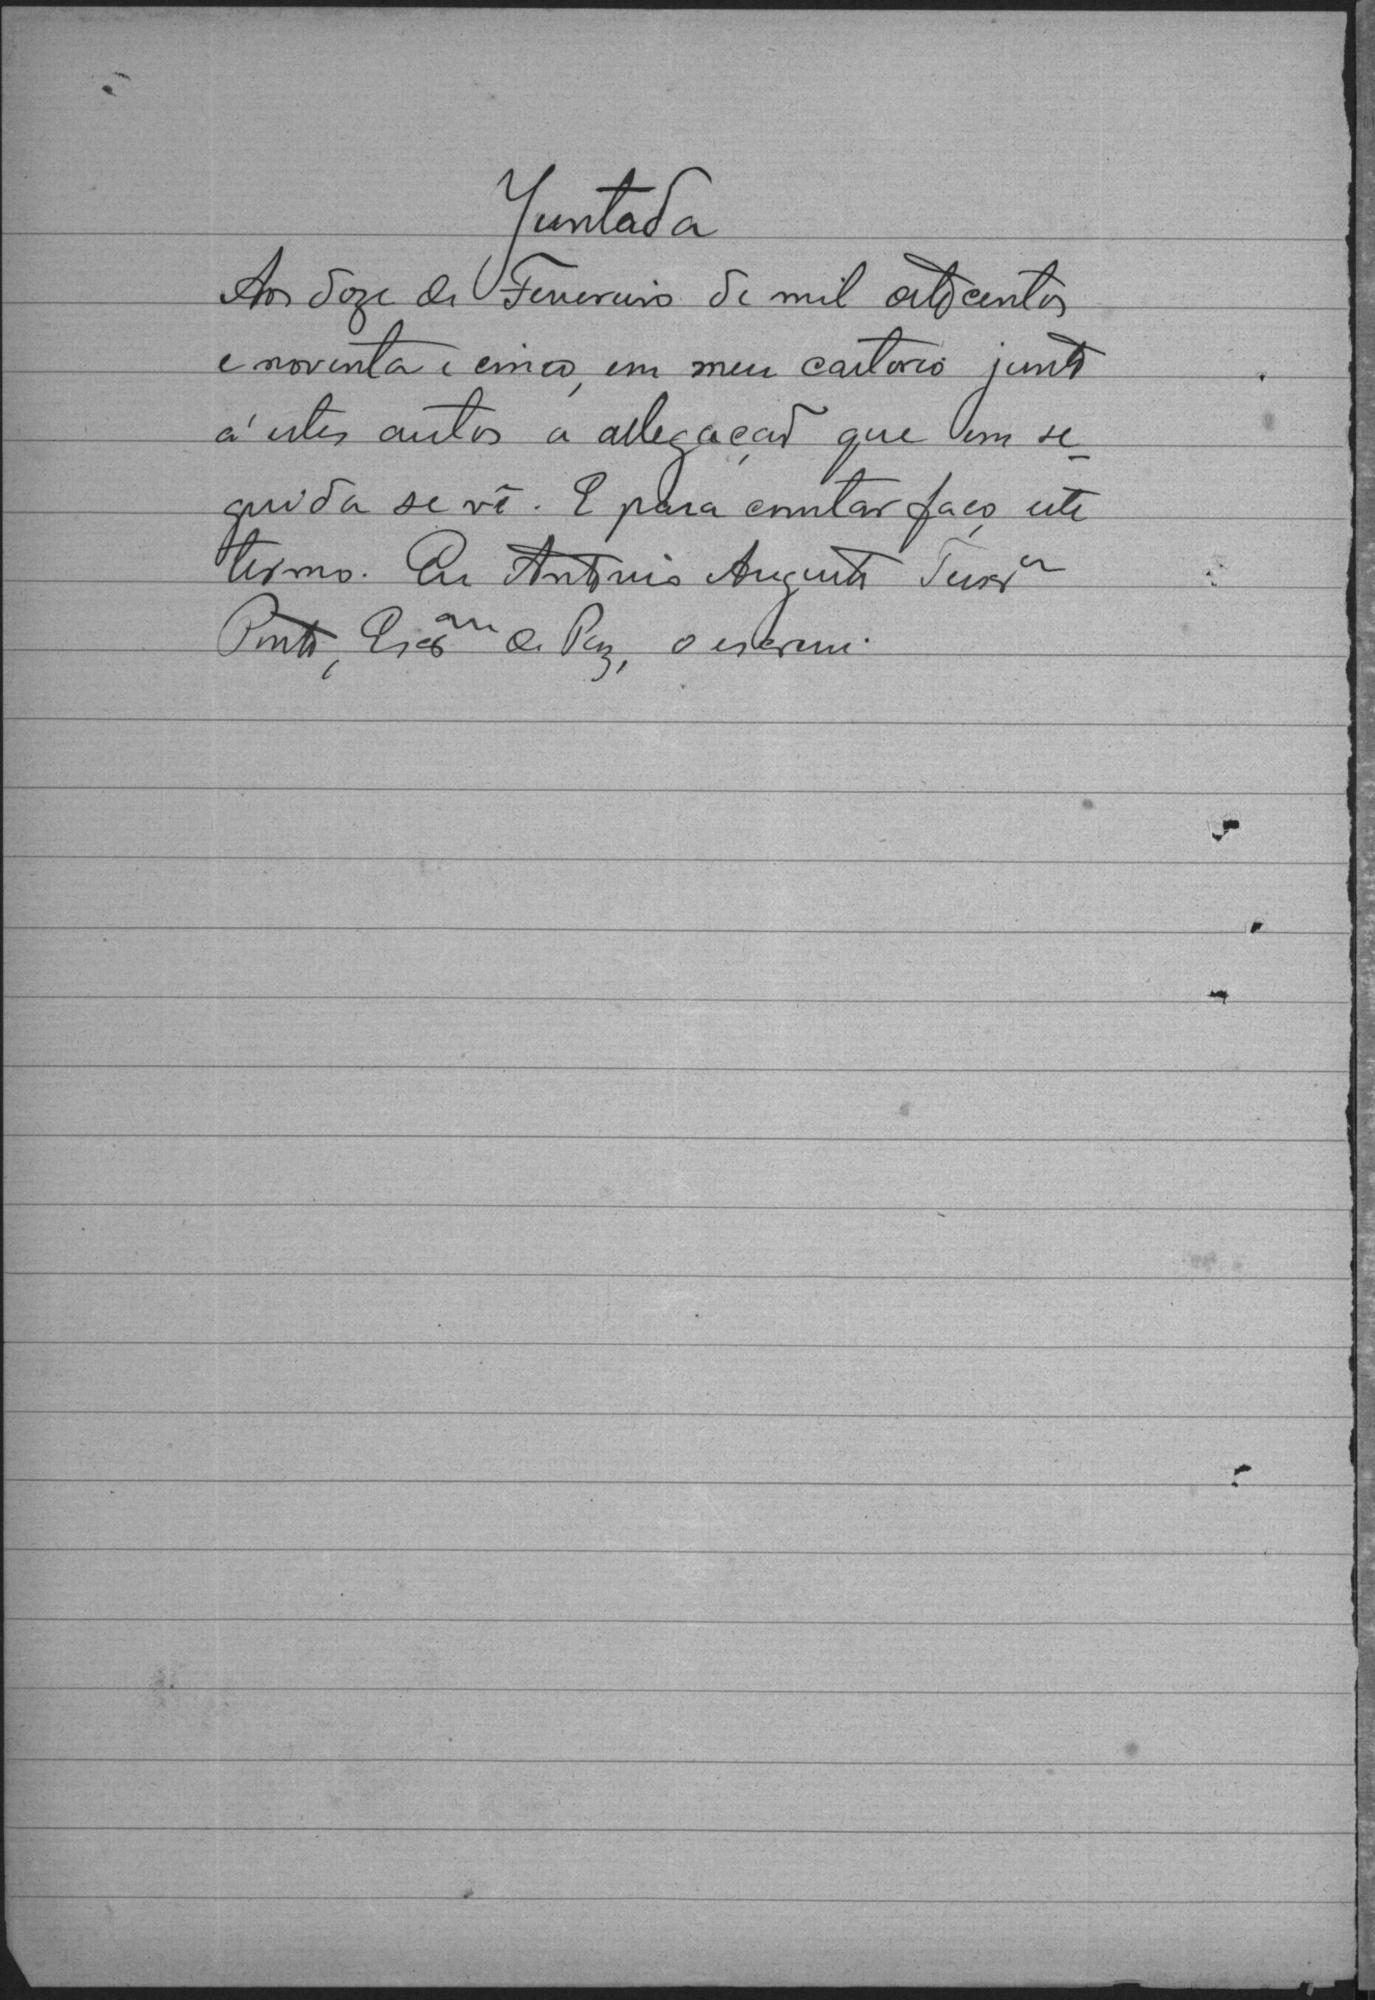 Juntada
Aos doze de Fevereiro de mil oitocentos
e noventa e cinco, em meu cartorio junto
a' estes autos a allegação que em se-
guida se vê. E para constar faço este
termo. Eu Antonio Augusto Teixrª
Pinto, Escrᵃᵐ de Paz, o escrevi.